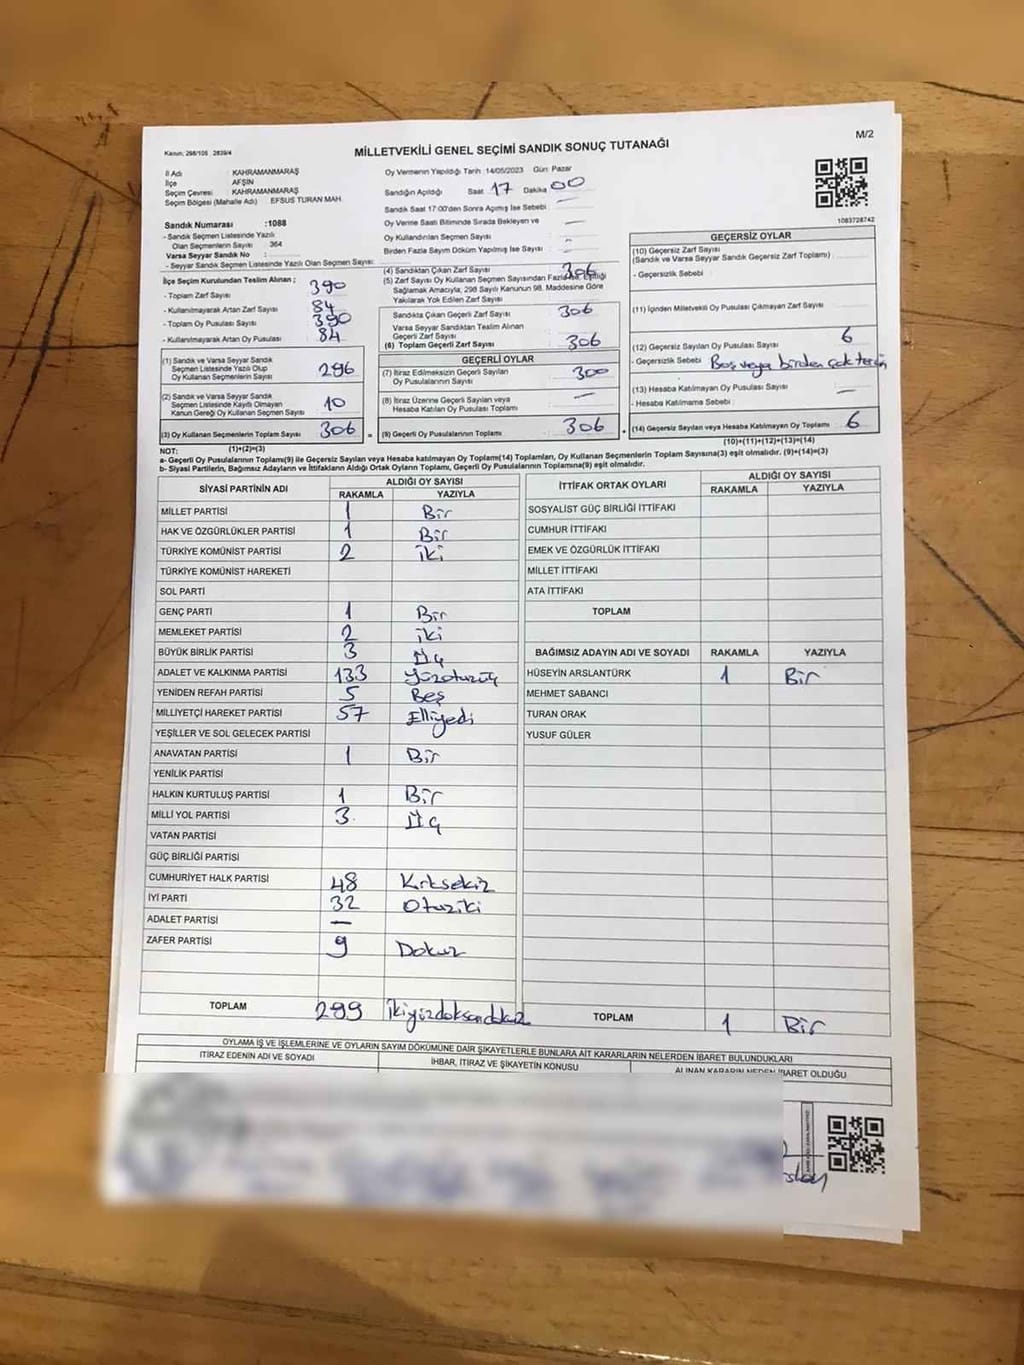 Kanun: 298/105 2839/4
MİLLETVEKİLİ GENEL SEÇİMİ SANDIK SONUÇ TUTANAĞI
M/2
İl Adı : KAHRAMANMARAŞ
İlçe : AFŞİN
Seçim Çevresi : KAHRAMANMARAŞ
Seçim Bölgesi (Mahalle Adı) : EFSUS TURAN MAH.
Sandık Numarası :1088
- Sandık Seçmen Listesinde Yazılı
Olan Seçmenlerin Sayısı : 364
Varsa Seyyar Sandık No :
- Seyyar Sandık Seçmen Listesinde Yazılı Olan Seçmen Sayısı:
Oy Vermenin Yapıldığı Tarih :14/05/2023 Gün: Pazar
Sandığın Açıldığı Saat 17 Dakika 00
Sandık Saat 17:00'den Sonra Açılmış İse Sebebi : —
Oy Verme Saati Bitiminde Sırada Bekleyen ve
Oy Kullandırılan Seçmen Sayısı : —
Birden Fazla Sayım Döküm Yapılmış İse Sayısı : —
1083728742
İlçe Seçim Kurulundan Teslim Alınan ;
- Toplam Zarf Sayısı : 390
- Kullanılmayarak Artan Zarf Sayısı : 84
- Toplam Oy Pusulası Sayısı : 390
- Kullanılmayarak Artan Oy Pusulası : 84
(1) Sandık ve Varsa Seyyar Sandık
Seçmen Listesinde Yazılı Olup
Oy Kullanan Seçmenlerin Sayısı : 296
(2) Sandık ve Varsa Seyyar Sandık
Seçmen Listesinde Kayıtlı Olmayan
Kanun Gereği Oy Kullanan Seçmen Sayısı : 10
(3) Oy Kullanan Seçmenlerin Toplam Sayısı : 306
(1)+(2)=(3)
(4) Sandıktan Çıkan Zarf Sayısı : 306
(5) Zarf Sayısı Oy Kullanan Seçmen Sayısından Fazla İse, Eşitliği
Sağlamak Amacıyla; 298 Sayılı Kanunun 98. Maddesine Göre
Yakılarak Yok Edilen Zarf Sayısı :
Sandıkta Çıkan Geçerli Zarf Sayısı : 306
Varsa Seyyar Sandıktan Teslim Alınan
Geçerli Zarf Sayısı :
(6) Toplam Geçerli Zarf Sayısı : 306
GEÇERLİ OYLAR
(7) İtiraz Edilmeksizin Geçerli Sayılan
Oy Pusulalarının Sayısı : 300
(8) İtiraz Üzerine Geçerli Sayılan veya
Hesaba Katılan Oy Pusulaları Toplamı : —
= (9) Geçerli Oy Pusulalarının Toplamı : 306
GEÇERSİZ OYLAR
(10) Geçersiz Zarf Sayısı
(Sandık ve Varsa Seyyar Sandık Geçersiz Zarf Toplamı) :
- Geçersizlik Sebebi :
(11) İçinden Milletvekili Oy Pusulası Çıkmayan Zarf Sayısı :
(12) Geçersiz Sayılan Oy Pusulası Sayısı : 6
- Geçersizlik Sebebi : Boş veya birden çok tercih
(13) Hesaba Katılmayan Oy Pusulası Sayısı : —
- Hesaba Katılmama Sebebi :
(14) Geçersiz Sayılan veya Hesaba Katılmayan Oy Toplamı : 6
(10)+(11)+(12)+(13)=(14)
NOT:
a- Geçerli Oy Pusulasının Toplamı(9) ile Geçersiz Sayılan veya Hesaba katılmayan Oy Toplam(14) Toplamları, Oy Kullanan Seçmenlerin Toplam Sayısına(3) eşit olmalıdır. (9)+(14)=(3)
b- Siyasi Partilerin, Bağımsız Adayların ve İttifakların Aldığı Ortak Oyların Toplamı, Geçerli Oy Pusulalarının Toplamına(9) eşit olmalıdır.
SİYASİ PARTİNİN ADI
ALDIĞI OY SAYISI
RAKAMLA YAZIYLA
MİLLET PARTİSİ 1 Bir
HAK VE ÖZGÜRLÜKLER PARTİSİ 1 Bir
TÜRKİYE KOMÜNİST PARTİSİ 2 iki
TÜRKİYE KOMÜNİST HAREKETİ
SOL PARTİ
GENÇ PARTİ 1 Bir
MEMLEKET PARTİSİ 2 iki
BÜYÜK BİRLİK PARTİSİ 3 Üç
ADALET VE KALKINMA PARTİSİ 133 Yüzotuzüç
YENİDEN REFAH PARTİSİ 5 Beş
MİLLİYETÇİ HAREKET PARTİSİ 57 Elliyedi
YEŞİLLER VE SOL GELECEK PARTİSİ
ANAVATAN PARTİSİ 1 Bir
YENİLİK PARTİSİ
HALKIN KURTULUŞ PARTİSİ 1 Bir
MİLLİ YOL PARTİSİ 3 Üç
VATAN PARTİSİ
GÜÇ BİRLİĞİ PARTİSİ
CUMHURİYET HALK PARTİSİ 48 Kırksekiz
İYİ PARTİ 32 Otuziki
ADALET PARTİSİ —
ZAFER PARTİSİ 9 Dokuz
TOPLAM 299 İkiyüzdoksandokuz
İTTİFAK ORTAK OYLARI
ALDIĞI OY SAYISI
RAKAMLA YAZIYLA
SOSYALİST GÜÇ BİRLİĞİ İTTİFAKI
CUMHUR İTTİFAKI
EMEK VE ÖZGÜRLÜK İTTİFAKI
MİLLET İTTİFAKI
ATA İTTİFAKI
TOPLAM
BAĞIMSIZ ADAYIN ADI VE SOYADI RAKAMLA YAZIYLA
HÜSEYİN ARSLANTÜRK 1 Bir
MEHMET SABANCI
TURAN ORAK
YUSUF GÜLER
TOPLAM 1 Bir
OYLAMA İŞ VE İŞLEMLERİNE VE OYLARIN SAYIM DÖKÜMÜNE DAİR ŞİKAYETLERLE BUNLARA AİT KARARLARIN NELERDEN İBARET BULUNDUKLARI
İTİRAZ EDENİN ADI VE SOYADI İHBAR, İTİRAZ VE ŞİKAYETİN KONUSU ALINAN KARARIN NEDEN İBARET OLDUĞU